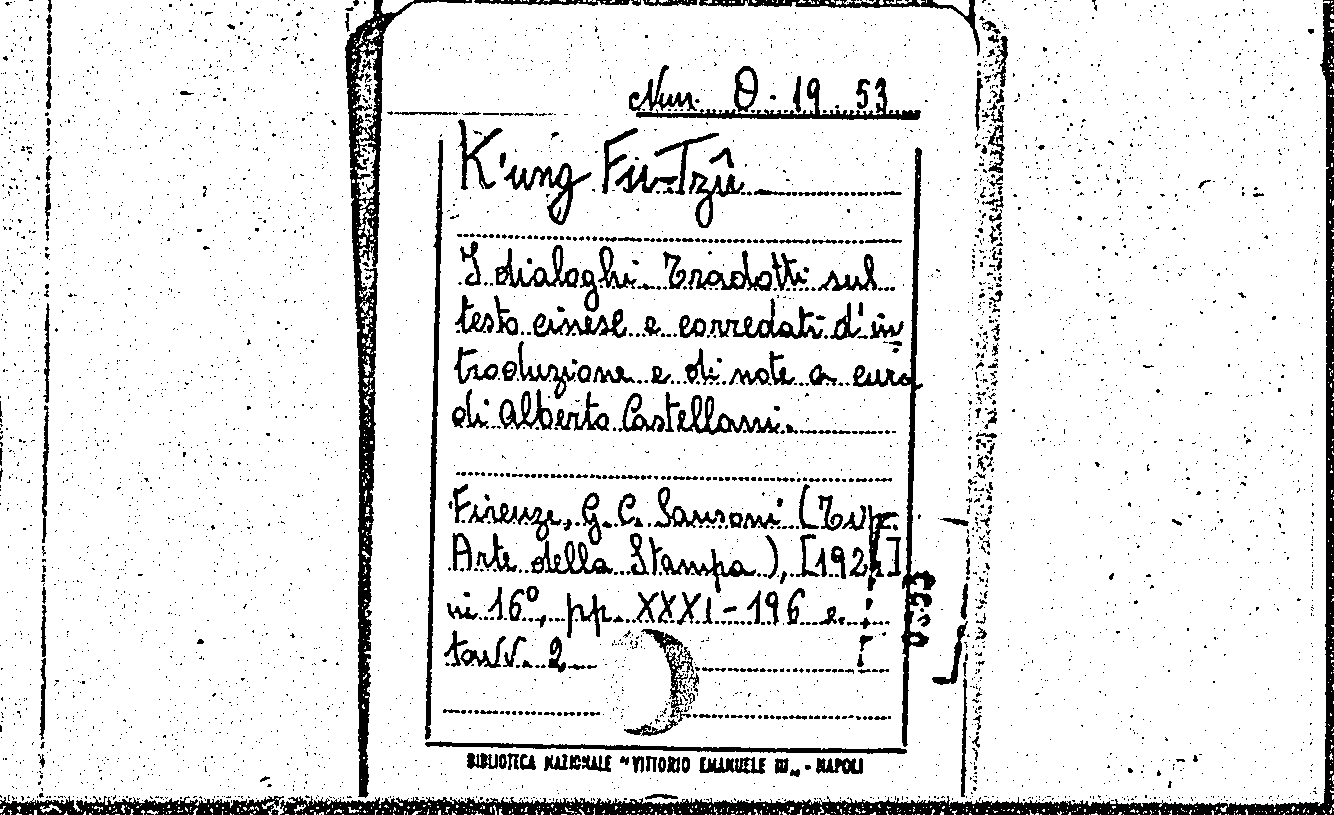 Nun. O. 19. 53
K'ung Fu-Tzû
I dialoghi. Tradotti sul
testo cinese e corredati d'in
troduzione e di note a cura
di Alberto Castellani.
Firenze, G. C. Sansoni (Tip.
Arte della Stampa),
in 16°, pp. XXXI-196 e
tavv. 2
BIBLIOTECA NAZIONALE "VITTORIO EMANUELE III" - NAPOLI